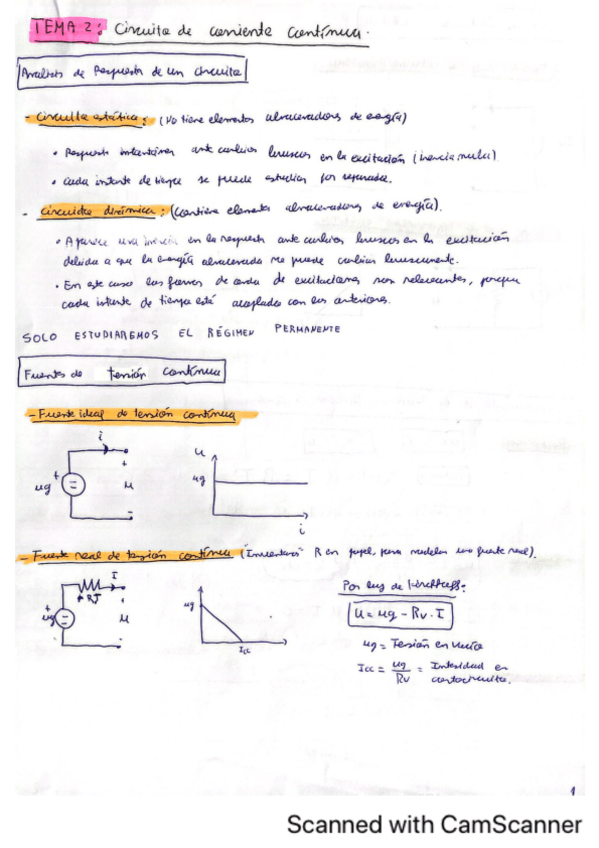 TEMA 2: Circuitos de corriente continua.
Análisis de Respuesta de un circuito
- Circuito estático: (No tiene elementos almacenadores de energía)
• Respuesta instantánea ante cambios bruscos en la excitación (inercia nula)
• Cada instante de tiempo se puede estudiar por separado.
- Circuitos dinámicos: (Contiene elementos almacenadores de energía).
• Aparece una inercia en la respuesta ante cambios bruscos en la excitación
debida a que la energía almacenada no puede cambiar bruscamente.
• En este caso las formas de onda de excitaciones son relevantes, porque
cada instante de tiempo está acoplado con los anteriores.
SOLO ESTUDIAREMOS EL RÉGIMEN PERMANENTE
Fuentes de tensión continua
- Fuente ideal de tensión continua
i
+
ug
+
=
u
-
u
ug
i
- Fuente real de tensión continua ("Inventamos" R en papel, para modelar una fuente real).
I
+
ug
+
=
u
-
ug
Icc
Por Ley de Kirchhoff:
u = ug - Rv · I
ug = Tensión en vacío
Icc = ug/Rv = Intensidad en
cortocircuito.
1
Scanned with CamScanner